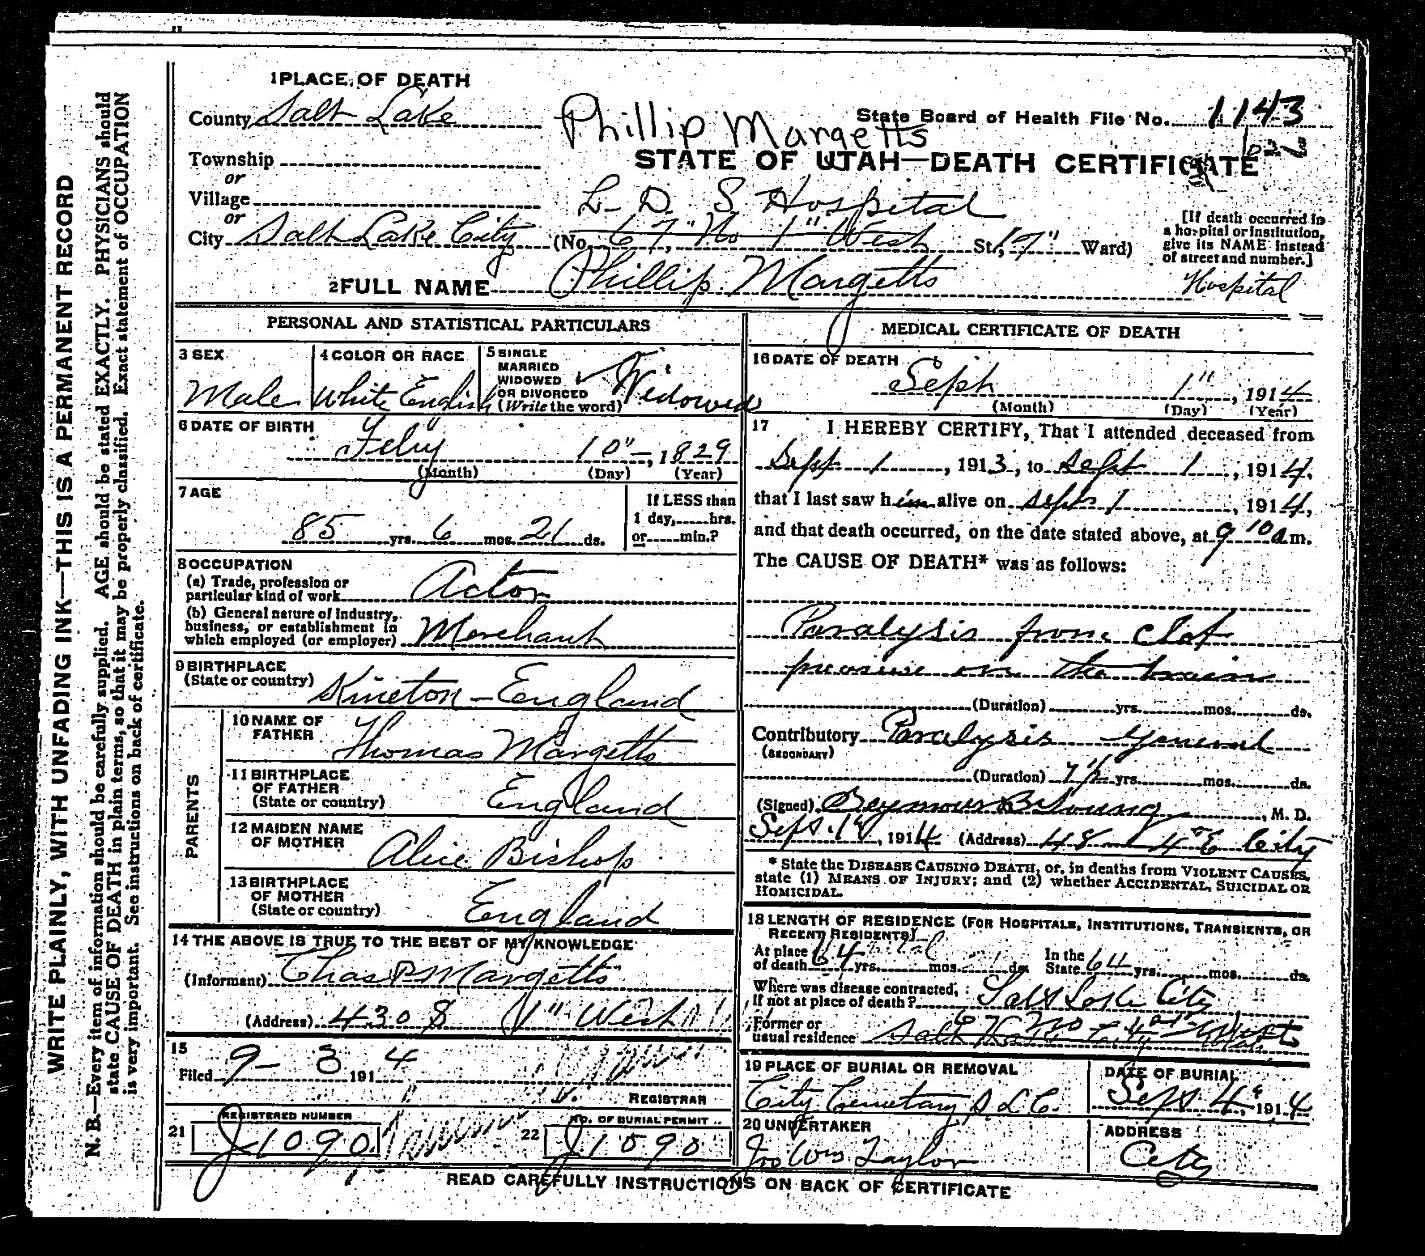 WRITE PLAINLY, WITH UNFADING INK—THIS IS A PERMANENT RECORD
N. B.—Every item of information should be carefully supplied. AGE should be stated EXACTLY. PHYSICIANS should
state CAUSE OF DEATH in plain terms, so that it may be properly classified. Exact statement of OCCUPATION
is very important. See instructions on back of certificate.
1 PLACE OF DEATH
County Salt Lake
Phillip Margetts
State Board of Health File No. 1143
Township
STATE OF UTAH—DEATH CERTIFICATE
or
Village
L. D. S Hospital
or
City Salt Lake City (No. 67 No 1" West St., 17" Ward)
[If death occurred in
a hospital or institution,
give its NAME instead
of street and number.]
Hospital
2 FULL NAME Phillip Margetts
PERSONAL AND STATISTICAL PARTICULARS
3 SEX
Male
4 COLOR OR RACE
White English
5 SINGLE
MARRIED
WIDOWED
OR DIVORCED
(Write the word)
Widowed
6 DATE OF BIRTH
Feby 10"-, 1829
(Month) (Day) (Year)
7 AGE
85 yrs. 6 mos. 21 ds.
If LESS than
1 day, hrs.
or min.?
8 OCCUPATION
(a) Trade, profession or
particular kind of work Actor
(b) General nature of industry,
business, or establishment in
which employed (or employer) Merchant
9 BIRTHPLACE
(State or country) Kineton - England
PARENTS
10 NAME OF
FATHER Thomas Margetts
11 BIRTHPLACE
OF FATHER
(State or country) England
12 MAIDEN NAME
OF MOTHER Alice Bishop
13 BIRTHPLACE
OF MOTHER
(State or country) England
14 THE ABOVE IS TRUE TO THE BEST OF MY KNOWLEDGE
(Informant) Chas P Margetts
(Address) 430 S 1" West
15
Filed 9- 3 1914
REGISTRAR
21 REGISTERED NUMBER
J1090
22 NO. OF BURIAL PERMIT
J1090
MEDICAL CERTIFICATE OF DEATH
16 DATE OF DEATH
Seph 1", 1914
(Month) (Day) (Year)
17 I HEREBY CERTIFY, That I attended deceased from
Sept 1, 1913, to Sept 1, 1914,
that I last saw him alive on Sept 1, 1914,
and that death occurred, on the date stated above, at 9 10 a m.
The CAUSE OF DEATH* was as follows:
Paralysis from clot
pressure on the brain
(Duration) yrs. mos. ds.
Contributory Paralysis General
(SECONDARY)
(Duration) 7 1/2 yrs. mos. ds.
(Signed) Seymour B Young, M. D.
Sept. 1st, 1914 (Address) 48 4th E City
* State the DISEASE CAUSING DEATH, or, in deaths from VIOLENT CAUSES,
state (1) MEANS OF INJURY; and (2) whether ACCIDENTAL, SUICIDAL OR
HOMICIDAL.
18 LENGTH OF RESIDENCE (FOR HOSPITALS, INSTITUTIONS, TRANSIENTS, OR
RECENT RESIDENTS)
At place
of death 64 yrs. mos. ds.
In the
State 64 yrs. mos. ds.
Where was disease contracted,
if not at place of death? Salt Lake City
Former or
usual residence 67 No 1st West
Salt Lake City
19 PLACE OF BURIAL OR REMOVAL
City Cemetary S L C.
DATE OF BURIAL
Sept 4", 1914
20 UNDERTAKER
Jos Wm Taylor
ADDRESS
City
READ CAREFULLY INSTRUCTIONS ON BACK OF CERTIFICATE